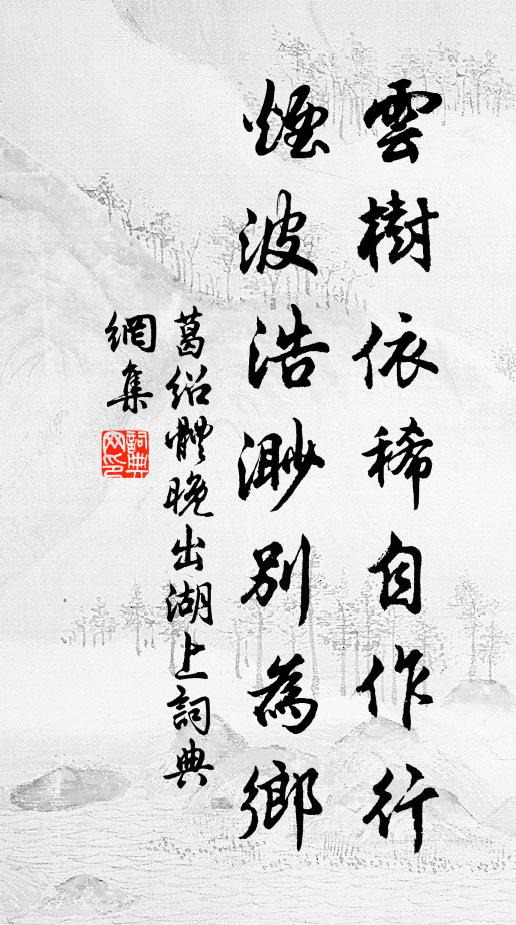 雲樹依稀自作行
煙波浩渺別為鄉
葛紹體晚出湖上詞典
網集
詞典網印